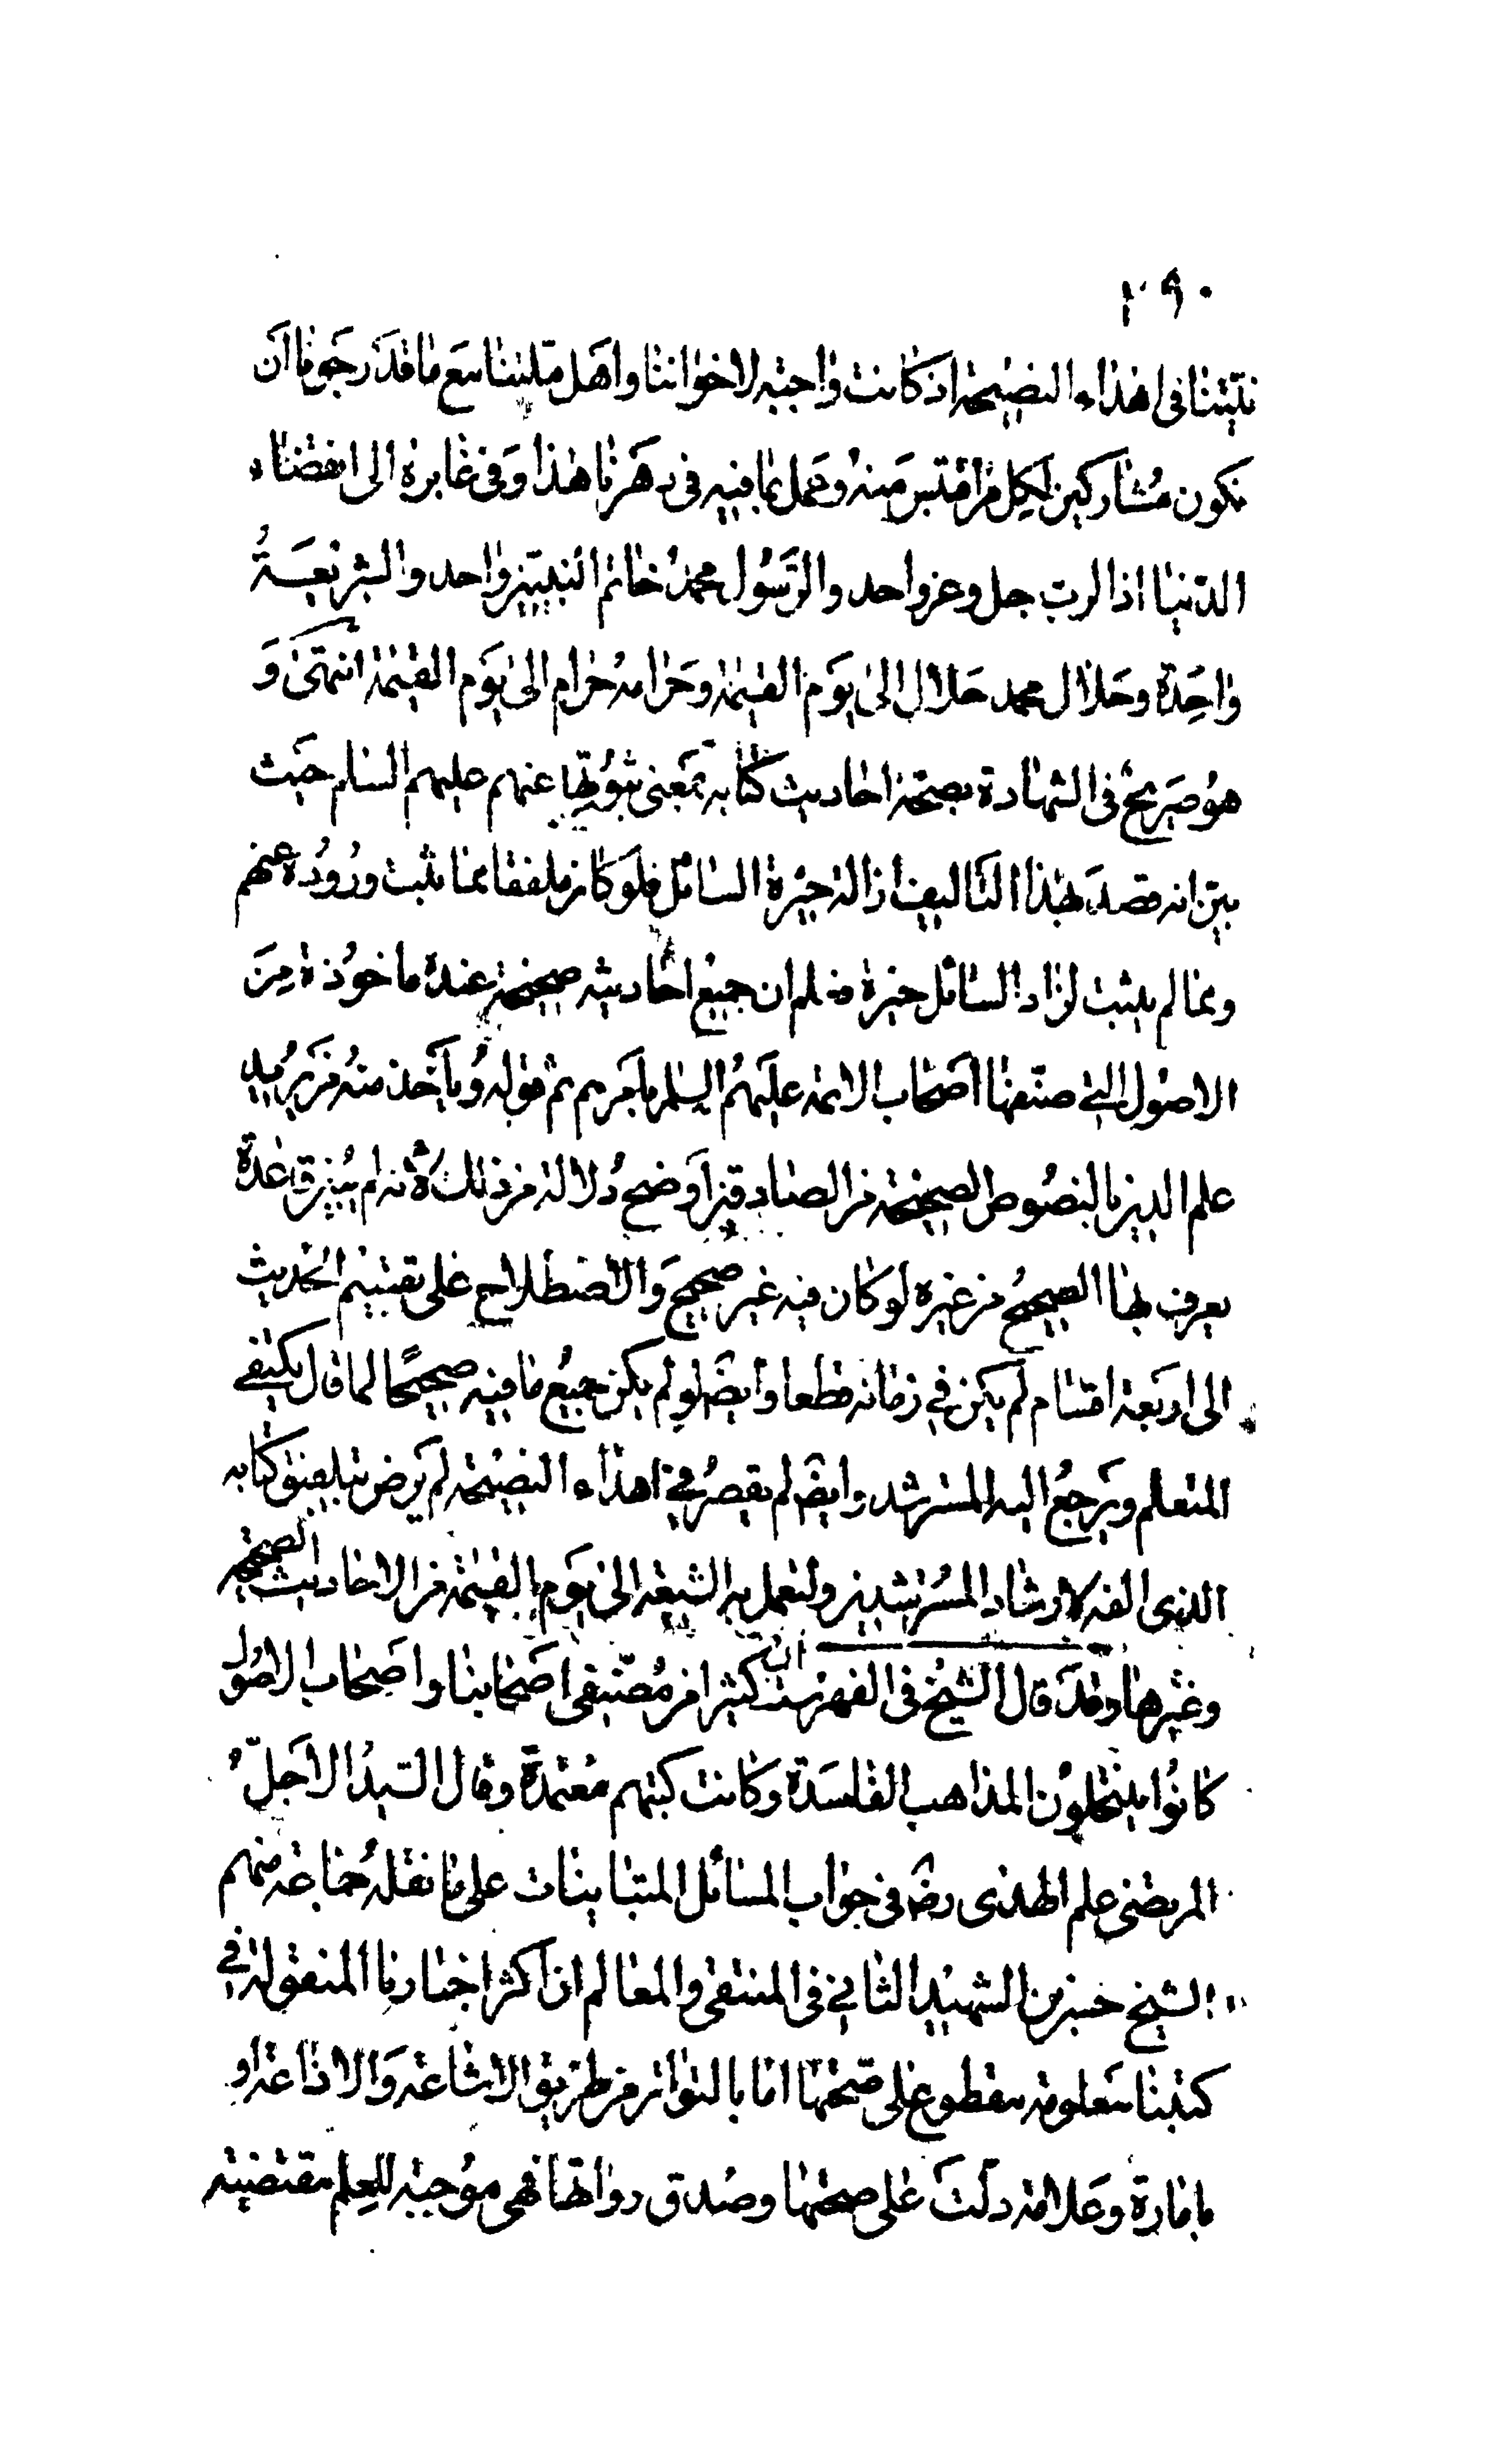 ٢٩٠
نيتنا فى اهداء النصيحة اذ كانت واجبة لاخواننا واهل ملتنا مع ما قد رجونا ان
نكون مشاركين لكل من اقتبس منه وعمل بما فيه فى دهرنا هذا وفى غابره الى انقضاء
الدنيا اذ الرب جل وعز واحد والرسول محمد خاتم النبيين واحد والشريعة
واحدة وحلال محمد حلال الى يوم القيمة وحرامه حرام الى يوم القيمة انتهى و
هو صريح فى الشهادة بصحة احاديث كتابه بمعنى ثبوتها عنهم عليهم السلم حيث
بين انه قصد بهذا التاليف ازالة حيرة السائل فلو كان ملفقا بما ثبت وروده عنهم
وبما لم يثبت لزاد السائل حيرة فعلم ان جميع احاديثه صحيحة عنده ماخوذة من
الاصول التى صنفها اصحاب الائمة عليهم السلم بامرهم ثم قوله وياخذ منه من يريد
علم الدين بالنصوص الصحيحة من الصادقين اوضح دلالة من ذلك فانه لم يبين قاعدة
يعرف بها الصحيح من غيره لو كان فيه غير صحيح والاصطلاح على تقسيم الحديث
الى اربعة اقسام لم يكن في زمانه قطعا وايضً لو لم يكن جميع ما فيه صحيحا لما قال يكتفى
المتعلم ويرجع اليه المسترشد وايضً لم يقصر في اهداء النصيحة لم يرض بتلفيق كتابه
الذى الفه لارشاد المسترشدين ولتعمل به الشيعة الى يوم القيمة من الاحاديث الصحيحة
وغيرها وقد قال الشيخ فى الفهرست ان كثيرا من مصنفى اصحابنا واصحاب الاصول
كانوا ينتحلون المذاهب الفاسدة وكانت كتبهم معتمدة وقال السيد الاجل
المرتضى علم الهدى رضً فى جواب المسائل المتباينات على ما نقله جماعة منهم
الشيخ حسن بن الشهيد الثانى فى المنتقى والمعالم ان اكثر اخبارنا المنقولة في
كتبنا معلومة مقطوع على صحتها اما بالتواتر من طريق الاشاعة والاذاعة او
بامارة وعلامة دلت على صحتها وصدق رواتها فهى موجبة للعلم مقتضية